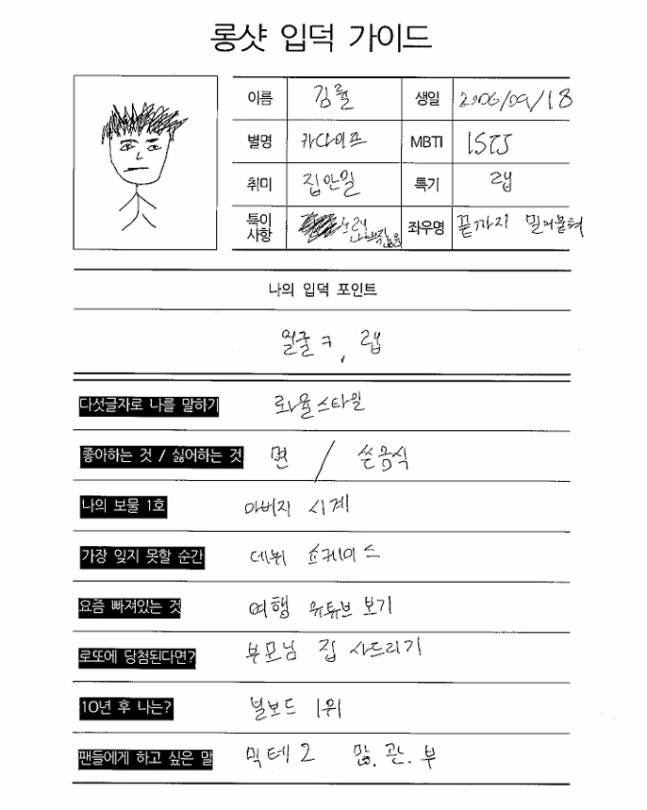 롱샷 입덕 가이드
이름 김률 생일 2006/09/18
별명 카다이프 MBTI ISTJ
취미 집안일 특기 랩
특이사항 노래 나쁘지않음 좌우명 끝까지 밀어붙혀
나의 입덕 포인트
얼굴ㅋ, 랩
다섯글자로 나를 말하기 롸율스타일
좋아하는 것 / 싫어하는 것 면 / 쓴음식
나의 보물 1호 아버지 시계
가장 잊지 못할 순간 데뷔 쇼케이스
요즘 빠져있는 것 여행 유튜브 보기
로또에 당첨된다면? 부모님 집 사드리기
10년 후 나는? 빌보드 1위
팬들에게 하고 싶은 말 믹테2 많.관.부